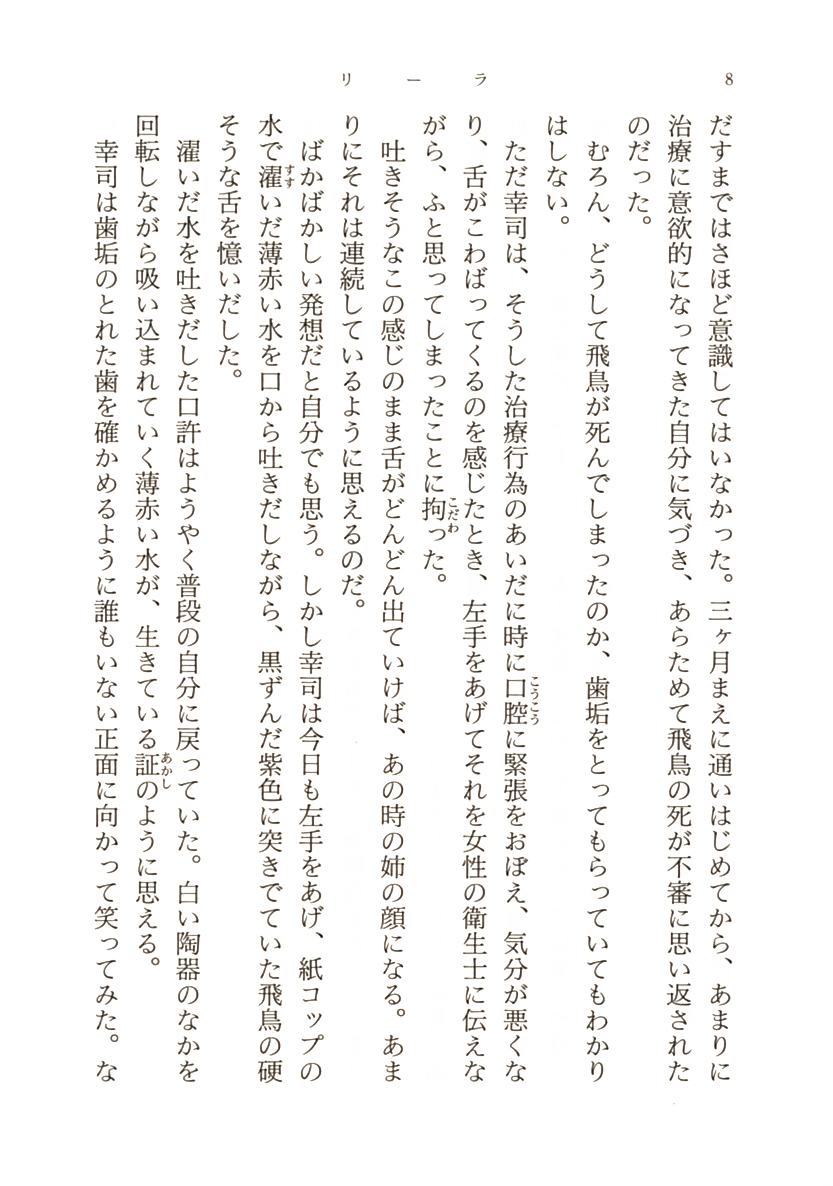 リーラ
8
だすまではさほど意識してはいなかった。三ヶ月まえに通いはじめてから、あまりに
治療に意欲的になってきた自分に気づき、あらためて飛鳥の死が不審に思い返された
のだった。
むろん、どうして飛鳥が死んでしまったのか、歯垢をとってもらっていてもわかり
はしない。
ただ幸司は、そうした治療行為のあいだに時に口腔に緊張をおぼえ、気分が悪くな
こうこう
り、舌がこわばってくるのを感じたとき、左手をあげてそれを女性の衛生士に伝えな
がら、ふと思ってしまったことに拘った。
こだわ
吐きそうなこの感じのまま舌がどんどん出ていけば、あの時の姉の顔になる。あま
りにそれは連続しているように思えるのだ。
ばかばかしい発想だと自分でも思う。しかし幸司は今日も左手をあげ、紙コップの
水で濯いだ薄赤い水を口から吐きだしながら、黒ずんだ紫色に突きでていた飛鳥の硬
すす
そうな舌を憶いだした。
濯いだ水を吐きだした口許はようやく普段の自分に戻っていた。白い陶器のなかを
回転しながら吸い込まれていく薄赤い水が、生きている証のように思える。
あかし
幸司は歯垢のとれた歯を確かめるように誰もいない正面に向かって笑ってみた。な